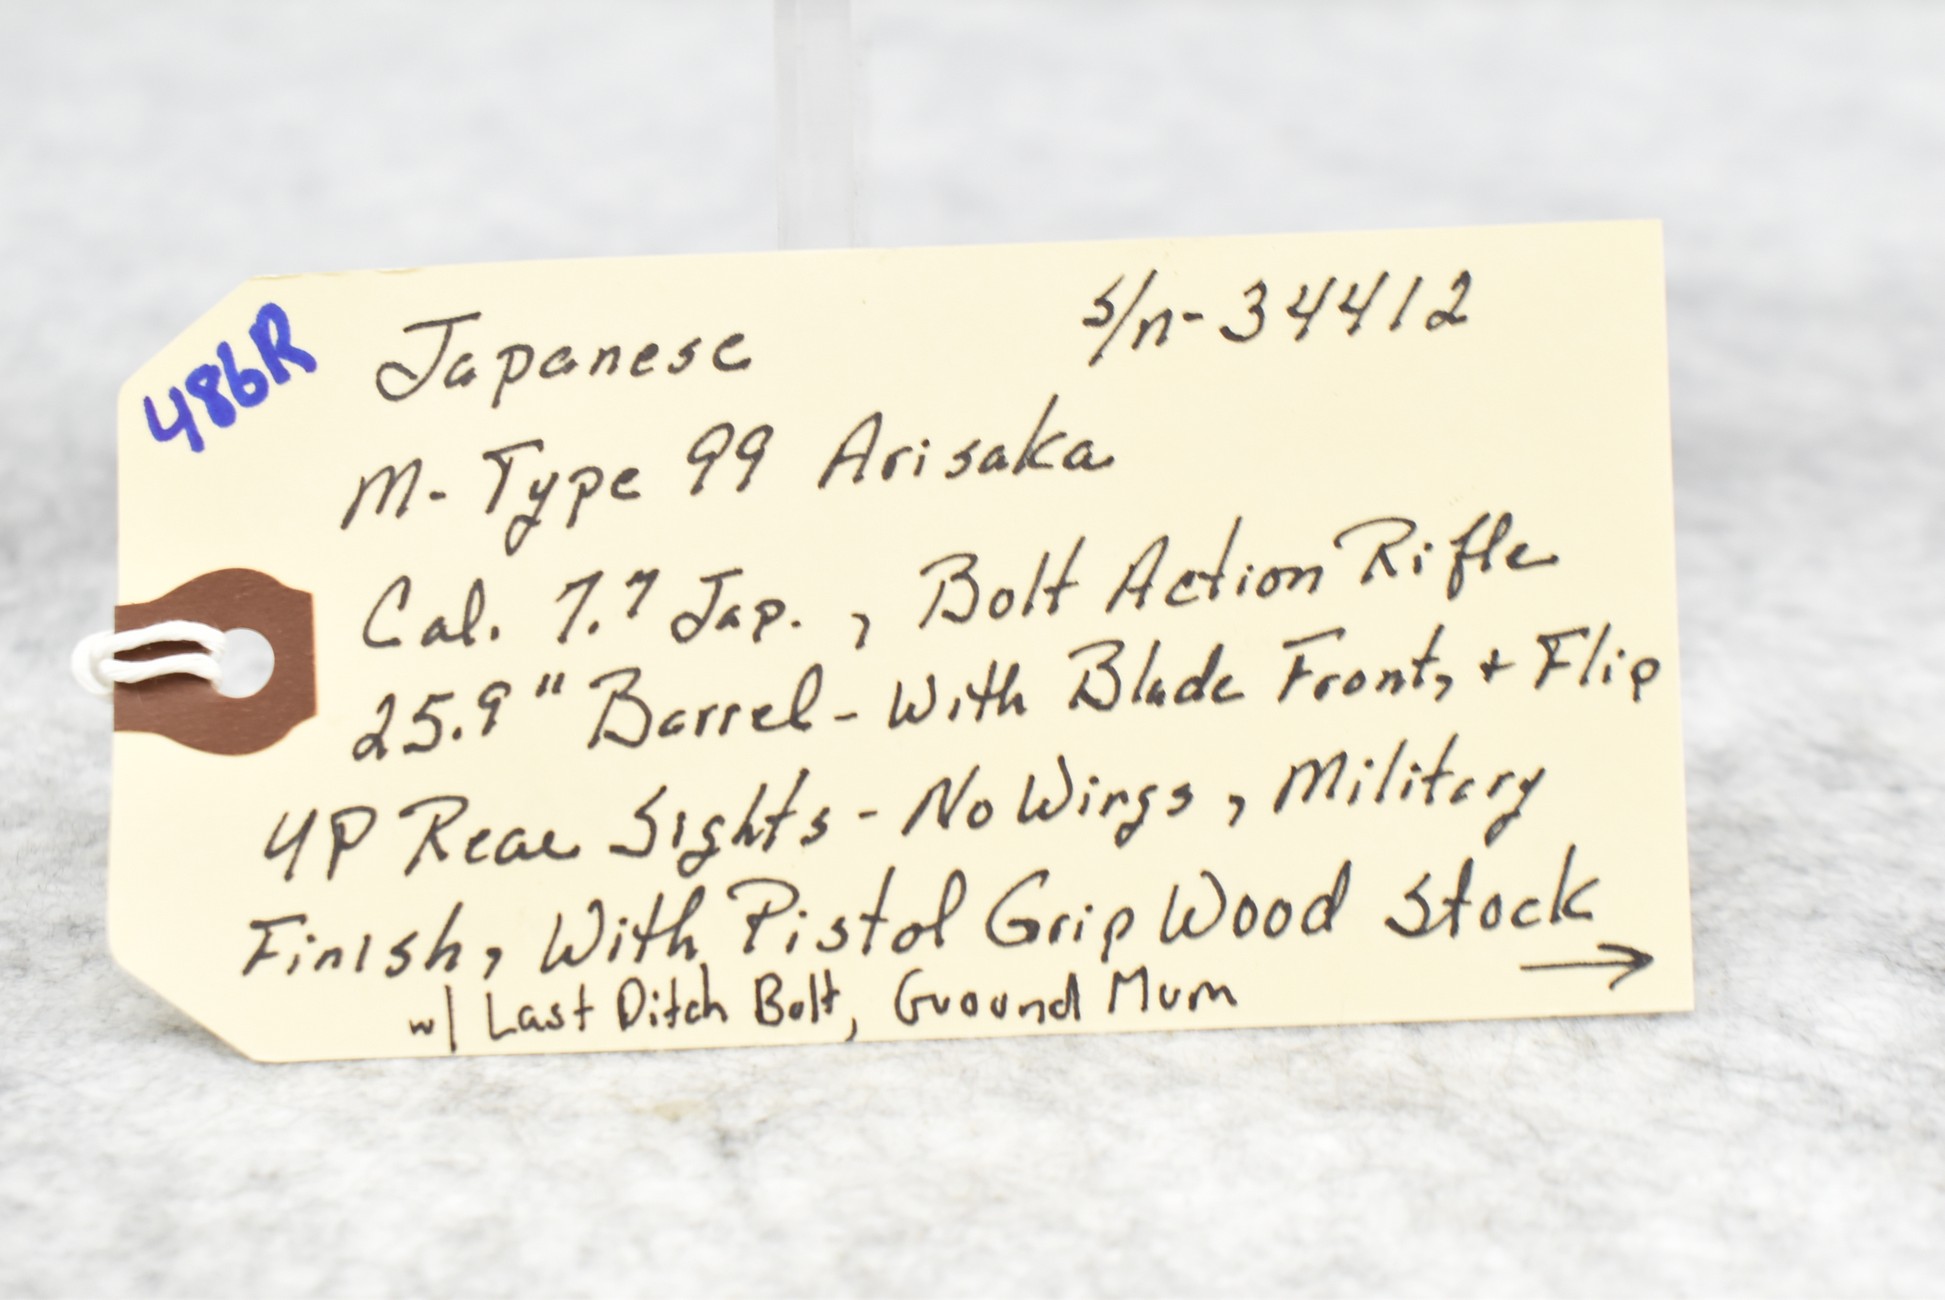 486R
Japanese s/n-34412
M-Type 99 Arisaka
Cal. 7.7 Jap., Bolt Action Rifle
25.9" Barrel - With Blade Front, + Flip
up Rear Sights - No Wings, Military
Finish, With Pistol Grip Wood Stock
→
w/ Last Ditch Bolt, Ground Mum